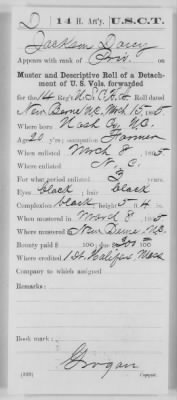 D | 14 H. Art'y. | U.S.C.T.
Jackson Darcy
Appears with rank of Priv. on
Muster and Descriptive Roll of a Detach-
ment of U. S. Vols. forwarded
for the 14 Reg't U.S.C.H.A. Roll dated
New Berne N.C. Mch 15, 1865.
Where born Nash Co, N.C.
Age 21 y'rs; occupation Farmer
When enlisted March 8, 1865
Where enlisted N.C.
For what period enlisted 3 years.
Eyes black; hair black
Complexion black; height 5 ft. 4 in.
When mustered in March 8, 1865
Where mustered in New Berne N.C.
Bounty paid $ 100; due $ 300 100
Where credited 1 st. Halifax Mass
Company to which assigned
Remarks:
Book mark:
Grogan
(339) Copyist.